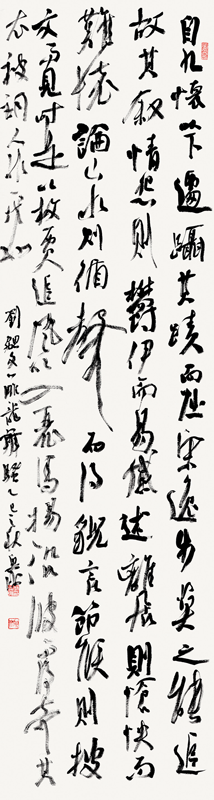 自九懷以下遽躡其蹟而屈宋逸步莫之能追
故其敘情怨則鬱伊而易感述離居則愴怏而
難懷論山水則循聲而得貌言節候則披
文而見時是以枚賈追風以入麗馬揚沿波而得奇其
衣被詞人非一代也
劉勰文心雕龍辨騷乙巳秋